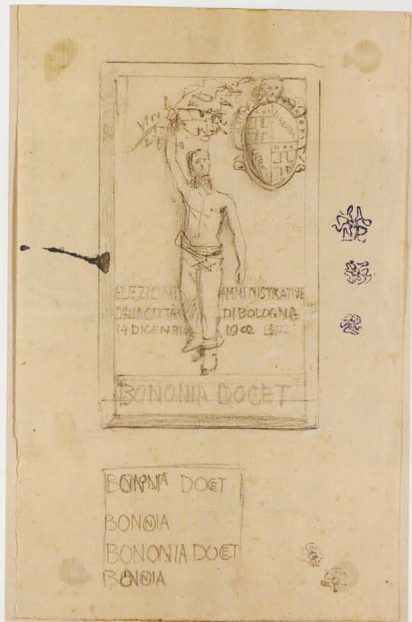 ELEZIONI AMMINISTRATIVE
DELLA CITTA DI BOLOGNA
14 DICEMBRE 1902
BONONIA DOCET
BONONIA DOCET
BONONIA
BONONIA DOCET
BONONIA